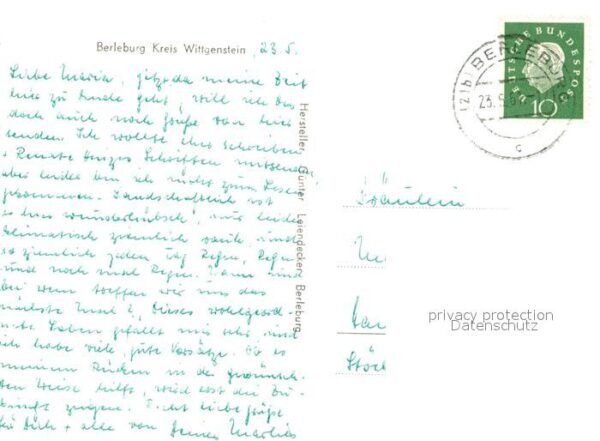 Berleburg Kreis Wittgenstein
23.5.
Liebe Maria, jetzt da meine Zeit
hier zu Ende geht, will ich Dir
doch auch noch Grüße von hier
senden. Ich wollte schreiben
+ Renate Schriften mitsenden,
aber leider bin ich nicht zum Lesen
gekommen. Landschaftlich ist
es hier wunderhübsch, nur leider
klimatisch ziemlich rauh, und
so ziemlich jeden Tag Regen, Regen
und noch mal Regen. Wann und
bei wem treffen wir uns das
nächste Mal? Dieses wohlgeord-
nete Leben gefällt mir sehr und
ich habe viele gute Vorsätze. Ob es
meinem Rücken in der gewünsch-
ten Weise hilft, wird erst die Zu-
kunft zeigen. Recht liebe Grüße
für Dich + alle von Deiner Marlies
Hersteller: Günter Leiendecker, Berleburg
DEUTSCHE BUNDESPOST
10
(21b) BERLEBURG
23.5.6
c
Fräulein
Stöc
privacy protection
Datenschutz